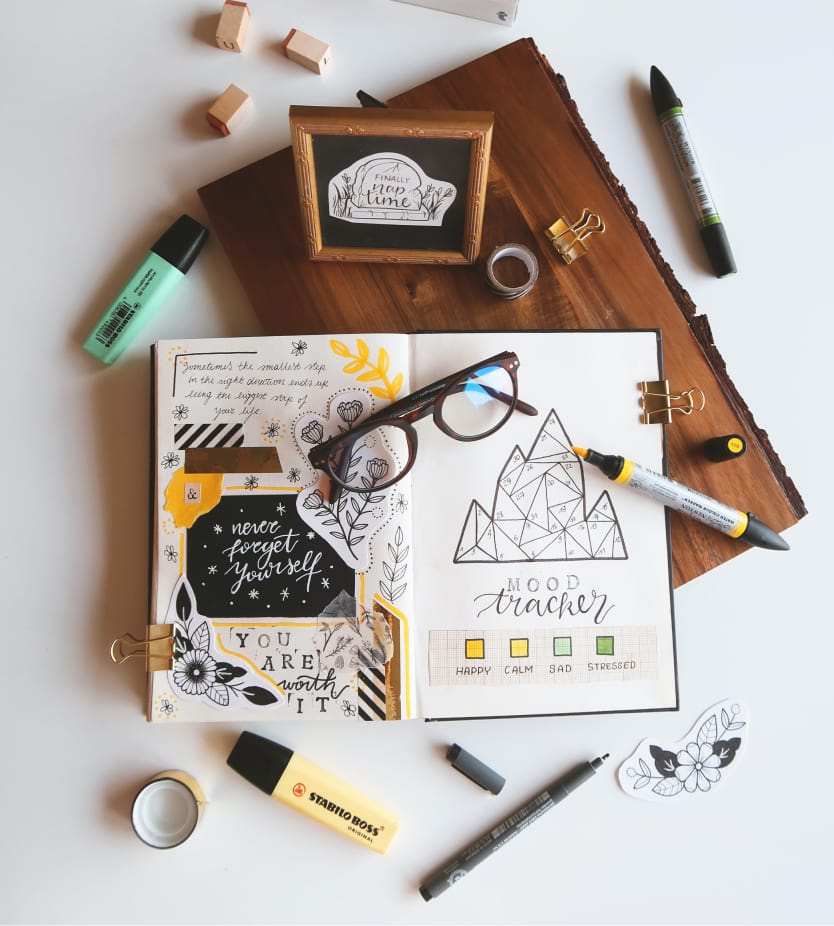 U
FINALLY
nap
time
STABILO BOSS
ORIGINAL
Sometimes the smallest step
in the right direction ends up
being the biggest step of
your life
&
never
forget
yourself
YOU
ARE
worth
IT
MOOD
tracker
HAPPY CALM SAD STRESSED
STABILO BOSS
ORIGINAL